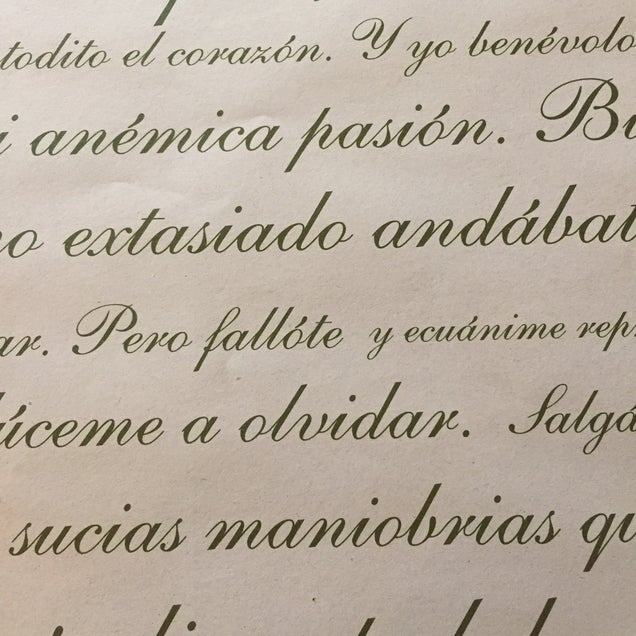 todito el corazón. Y yo benévolo
i anémica pasión. Bu
no extasiado andábat
ar. Pero fallóte y ecuánime repr
úceme a olvidar. Salgá
sucias maniobrias qu